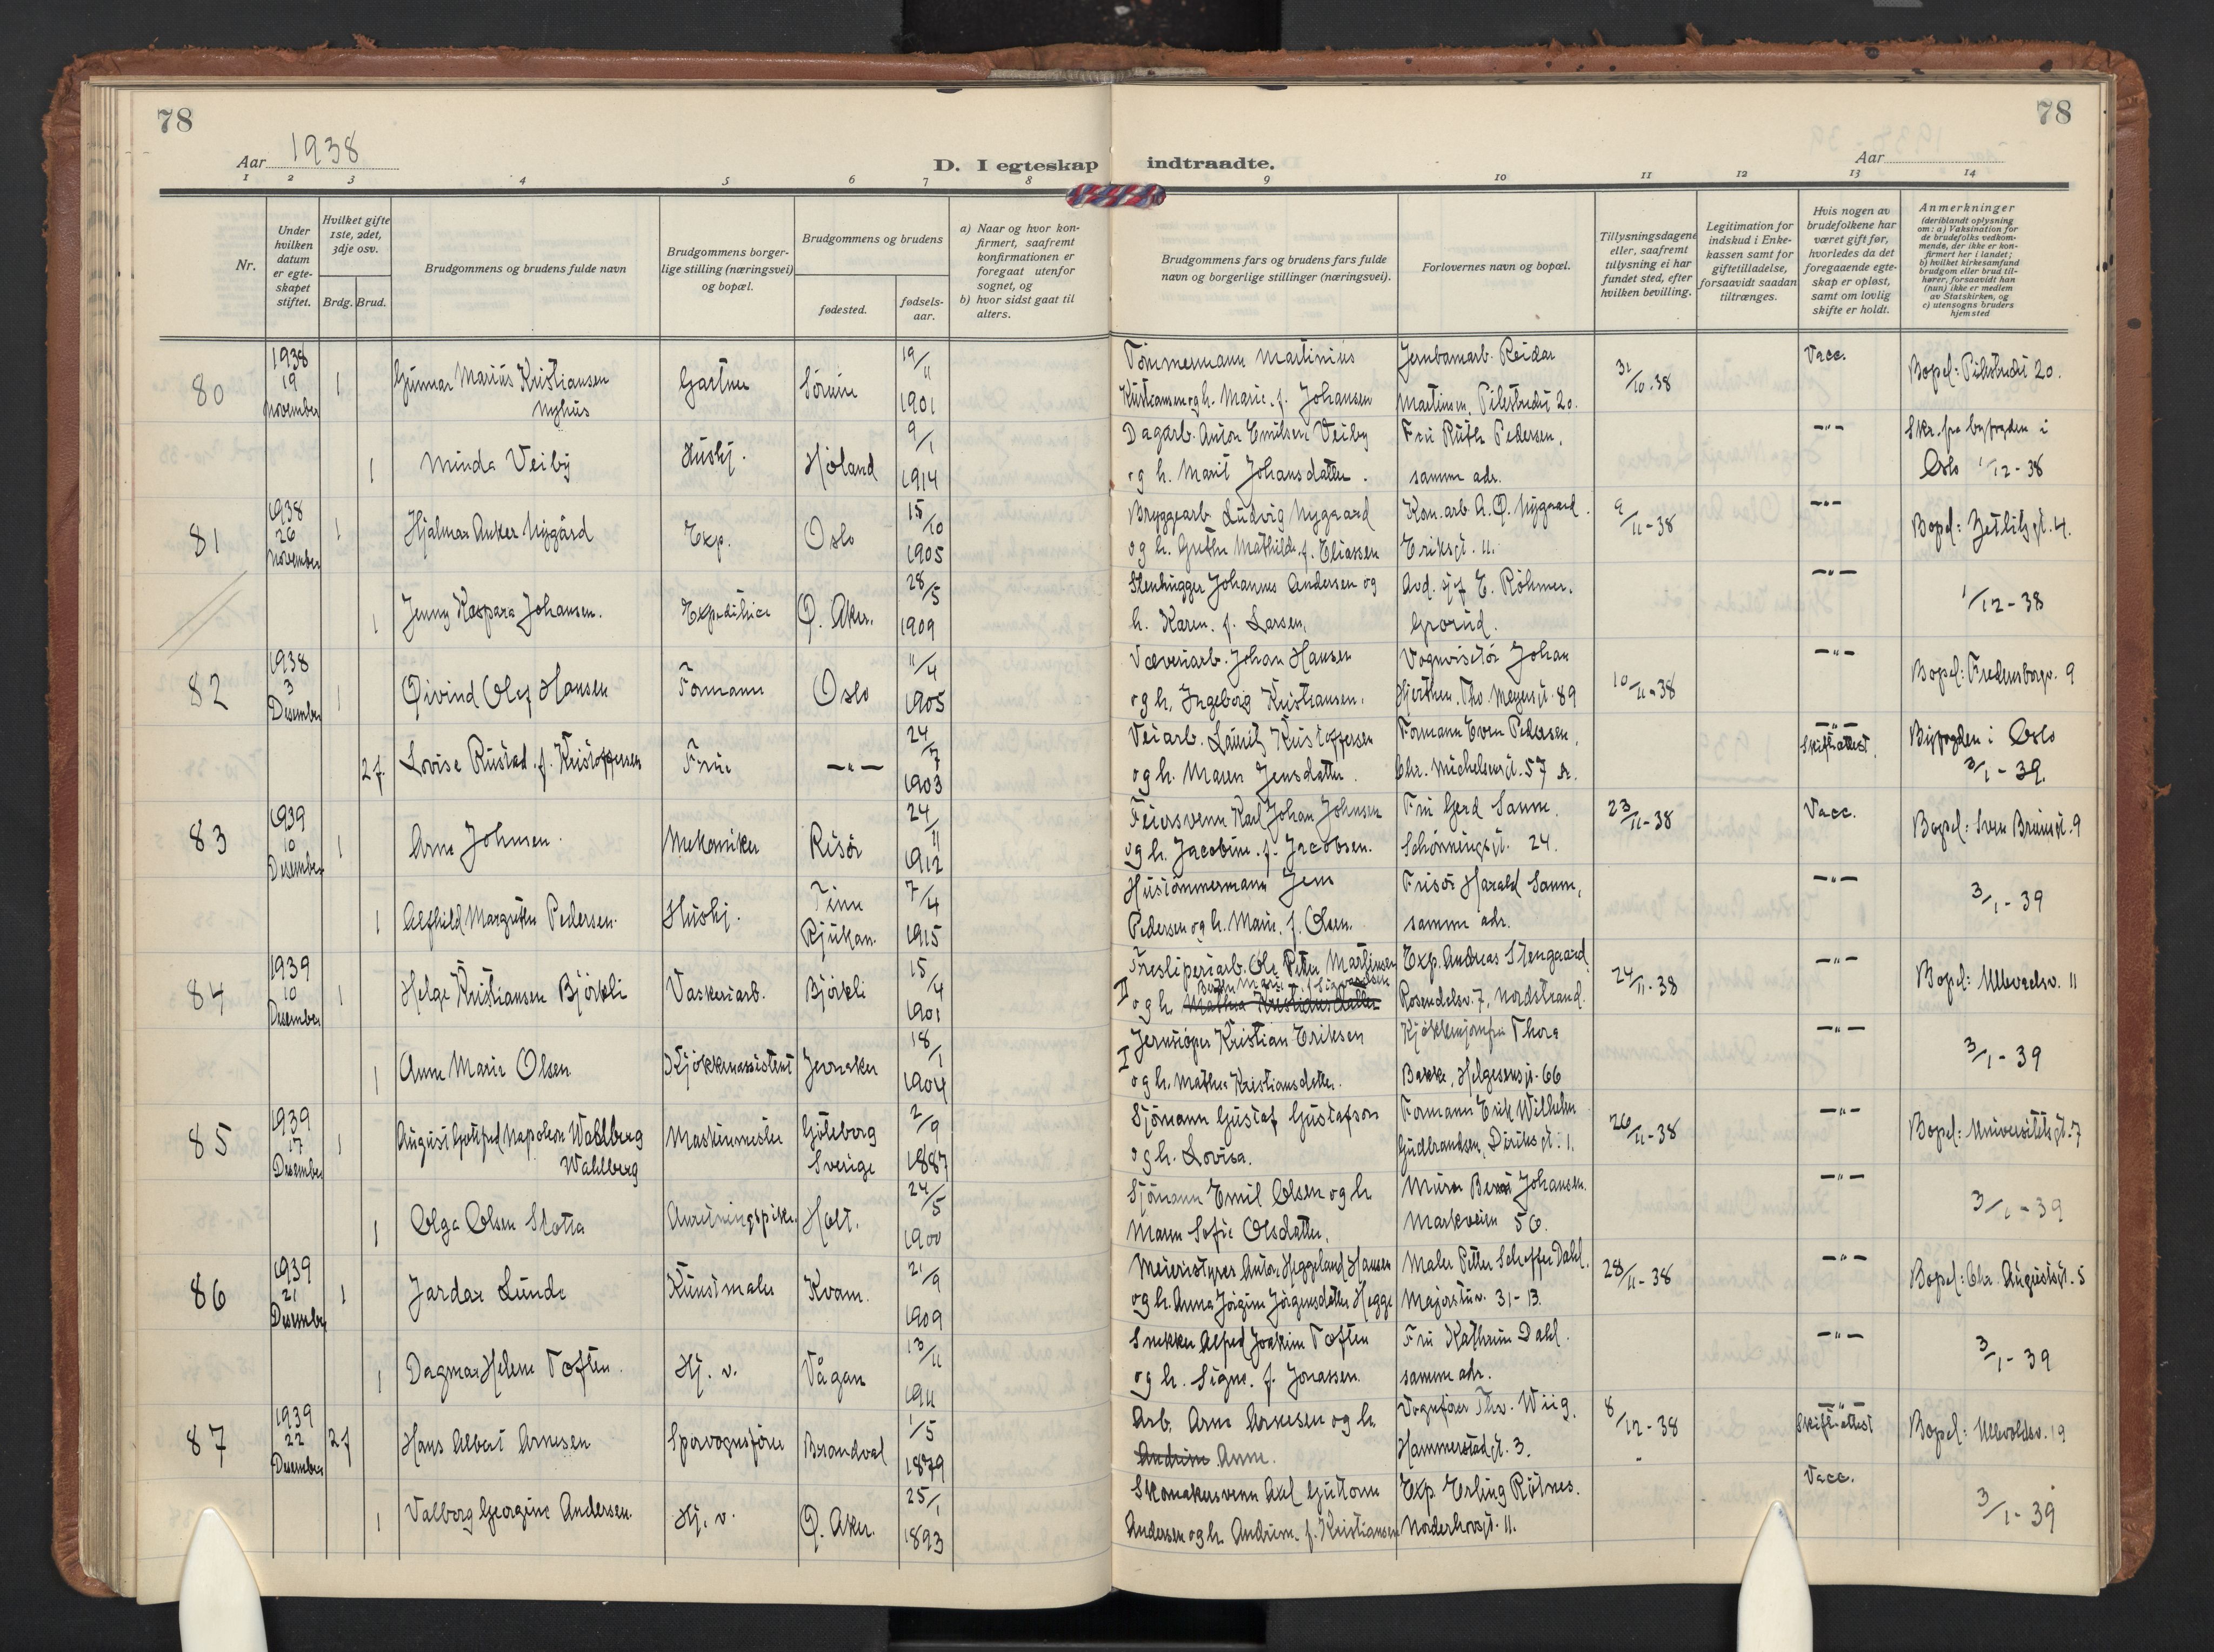 78
78
Aar 1938
D. I egteskap indtraadte.
Aar
1 2 3 4 5 6 7 8 9 10 11 12 13 14
Nr.
Under hvilken datum er egteskapet stiftet.
Hvilket gifte 1ste, 2det, 3dje osv.
Brdg. Brud.
Brudgommens og brudens fulde navn
Brudgommens borgerlige stilling (næringsvei) og bopæl.
Brudgommens og brudens
fødested.
fødselsaar.
a) Naar og hvor konfirmert, saafremt konfirmationen er foregaat utenfor sognet, og
b) hvor sidst gaat til alters.
Brudgommens fars og brudens fars fulde navn og borgerlige stillinger (næringsvei).
Forlovernes navn og bopæl.
Tillysningsdagene eller, saafremt tillysning ei har fundet sted, efter hvilken bevilling.
Legitimation for indskud i Enkekassen samt for giftetilladelse, forsaavidt saadan tiltrænges.
Hvis nogen av brudefolkene har været gift før, hvorledes da det foregaaende egteskap er opløst, samt om lovlig skifte er holdt.
Anmerkninger
(deriblandt oplysning om: a) Vaksination for de brudefolks vedkommende, der ikke er konfirmert her i landet; b) hvilket kirkesamfund brudgom eller brud tilhører, forsaavidt han (hun) ikke er medlem av Statskirken, og c) utensogns bruders hjemsted
80 1938 19 November 1 Gunnar Marius Kristiansen Nyhus Gartner Sörum 19/11 1901 Tömmermann Martinius Kristiansen og h. Marie. f. Johansen Jernbanearb. Reidar Martinsen, Pilestredet 20. 31/10-38 Vacc. Bopel: Pilestredet 20.
1 Minda Veiby Hushj. Höland 9/1 1914 Dagarb. Anton Emilsen Veiby og h. Marit Johansdatter. Fru Ruth Pedersen, samme adr. -"- Skr. fra byfogden i Oslo 1/12-38
81 1938 26 November 1 Hjalmar Anker Nygård Exp. Oslo 15/10 1905 Bryggearb. Ludvig Nygaard og h. Grethe Mathilde f. Eliassen Kom. arb. A. Ø. Nygaard. Eriksgt. 11. 9/11-38 -"- Bopel: Zetlitzgt. 4.
1 Jenny Kaspara Johansen. Expeditrice Ø. Aker. 28/5 1909 Stenhugger Johannes Andersen og h. Karen. f. Larsen. Avd. sjef E. Röhmer. Grorud. -"- 1/12-38
82 1938 3 Desember 1 Øivind Olaf Hansen Formann Oslo 11/4 1905 Væveriarb. Johan Hansen og h. Ingeborg Kristiansen. Vognvisitör Johan Hjerthen. Tho. Meyersgt. 89 10/11-38 -"- Bopel: Fredensborgv. 9
2 f. Lovise Rustad. f. Kristoffersen Frue -"- 24/7 1903 Veiarb. Lauritz Kristoffersen og h. Maren Jensdatter. Formann Even Pedersen, Chr. Michelsensgt. 57 A. -"- Skifteattest Byfogden i Oslo 3/1-39.
83 1939 10 Desember 1 Arne Johnsen. Mekaniker Risör 24/11 1912 Feiersvenn Karl Johan Johnsen og h. Jacobine. f. Jacobsen. Fru Gerd Sanne. Schönningsgt. 24. 23/11-38 Vacc. Bopel: Sven Bruunsgt. 9
1 Alfhild Margrethe Pedersen. Hushj. Tinn Rjukan. 7/4 1915 Hustömmermann Jens Pedersen og h. Marie. f. Olsen. Frisör Harald Sanne, samme adr. -"- 3/1-39
84 1939 10 Desember 1 Helge Kristiansen Björkli Vaskeriarb. Björkli 15/4 1901 II Tresliperiarb. Ole Petter Martinsen og h. Mathea Kristiansdatter Exp. Andreas Stengaard, Rosendalsv. 7, Nordstrand. 24/11-38 -"- Bopel: Ullevaalsv. 11
1 Anne Marie Olsen Kjökkenassistent Jevnaker 18/1 1904 I Jernstöper Kristian Eriksen og h. Mathea Kristiansdatter. Kjökkenjomfru Thora Bakke, Helgesensgt. 66 -"- 3/1-39
85 1939 17 Desember 1 August Gottfred Napoleon Wahlberg Wahlberg Maskinmester Göteborg Sverige 2/9 1887 Sjömann Gustaf Gustafson og h. Lovisa. Formann Erik Wilhelm Gudbrandsen, Diriksgt. 1. 26/11-38 -"- Bopel: Universitetsgt. 7
1 Olga Olsen Slotta Anretningspike. Holt. 24/5 1900 Sjömann Emil Olsen og h. Maren Sofie Olsdatter. Murer Johansen. Markveien 56. -"- 3/1-39
86 1939 21 Desember 1 Jardar Lunde Kunstmaler Kvam. 21/9 1909 Meieristyrer Anton Heggeland Hansen og h. Anna Jörgine Jörgensdatter Hegge Maler Petter Scheffer Dahl. Majorstuv. 31-13. 28/11-38 -"- Bopel: Chr. Augustsgt. 5
1 Dagmar Helene Toften. Hj. v. Vågan 13/11 1911 Snekker Alfred Joakim Toften og h. Signe. f. Jonassen. Fru Kathrine Dahl. samme adr. -"- 3/1-39
87 1939 22 Desember 2 f Hans Albert Arnesen Sporvognsförer Brandval 1/5 1879 Arb. Arne Arnesen og h. Andrine Anne. Vognförer Thv. Wiig. Hammerstadgt. 3. 8/12-38 -"- Skifteattest Bopel: Ullevoldsv. 19
1 Valborg Georgine Andersen. Hj. v. Ø. Aker. 25/1 1893 Skomakersvenn Axel Guttorm Andersen og h. Andrine. f. Kristiansen Exp. Erling Rötnes. Norderhovsgt. 11. Vacc. 3/1-39